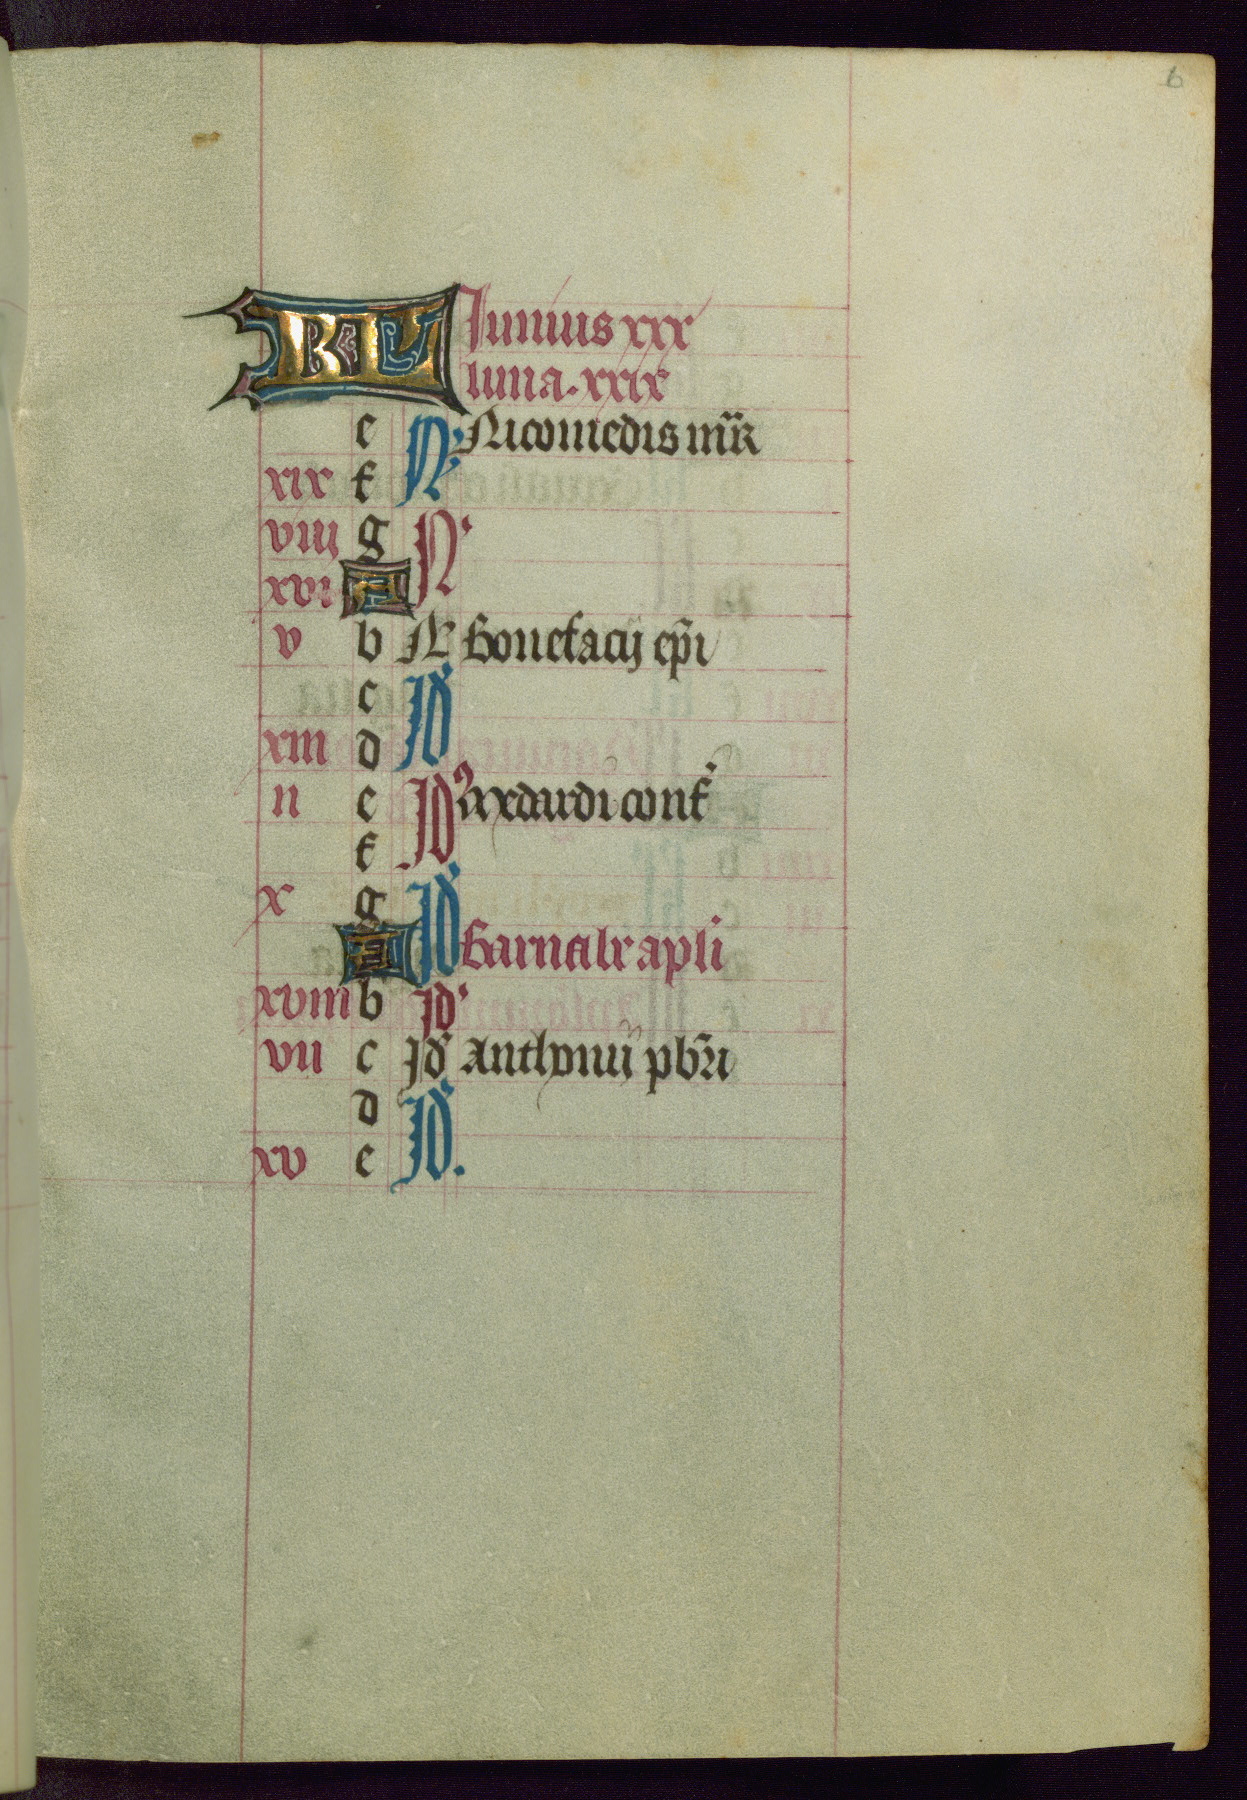 6
KL Iunius xxx
luna. xxix
e N Nicomedis mr̄
xix f
viii g N
xvi A
v b N Bonefacij ep̄i
c Id
xiii d
ii e Id Medardi conf
f
x g Id
A Barnabe apl̄i
xviii b Id
vii c Id Anthonii pb̄ri
d Id.
xv e